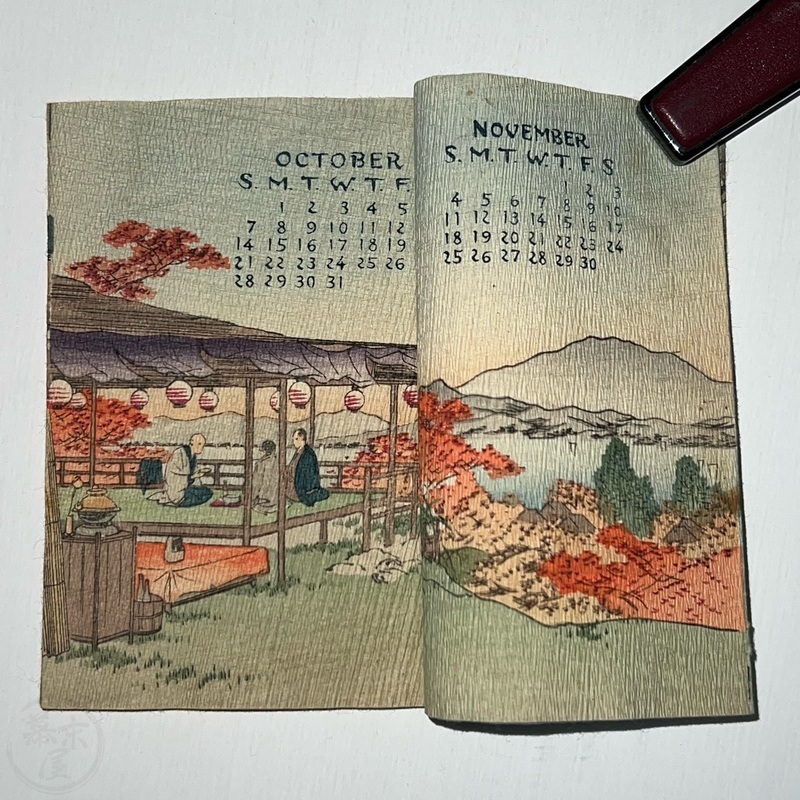 OCTOBER
S. M. T. W. T. F.
1 2 3 4 5
7 8 9 10 11 12
14 15 16 17 18 19
21 22 23 24 25 26
28 29 30 31
NOVEMBER
S. M. T. W. T. F. S
1 2 3
4 5 6 7 8 9 10
11 12 13 14 15 16 17
18 19 20 21 22 23 24
25 26 27 28 29 30
幕末屋